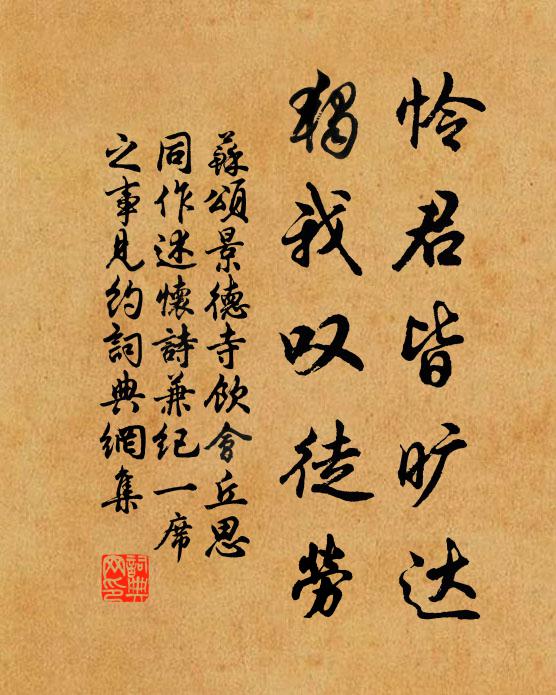 怜君皆旷达
獨我叹徒勞
蘇頌景德寺飲會丘思
同作述懷詩兼紀一席
之事見約詞典網集
詞典网印